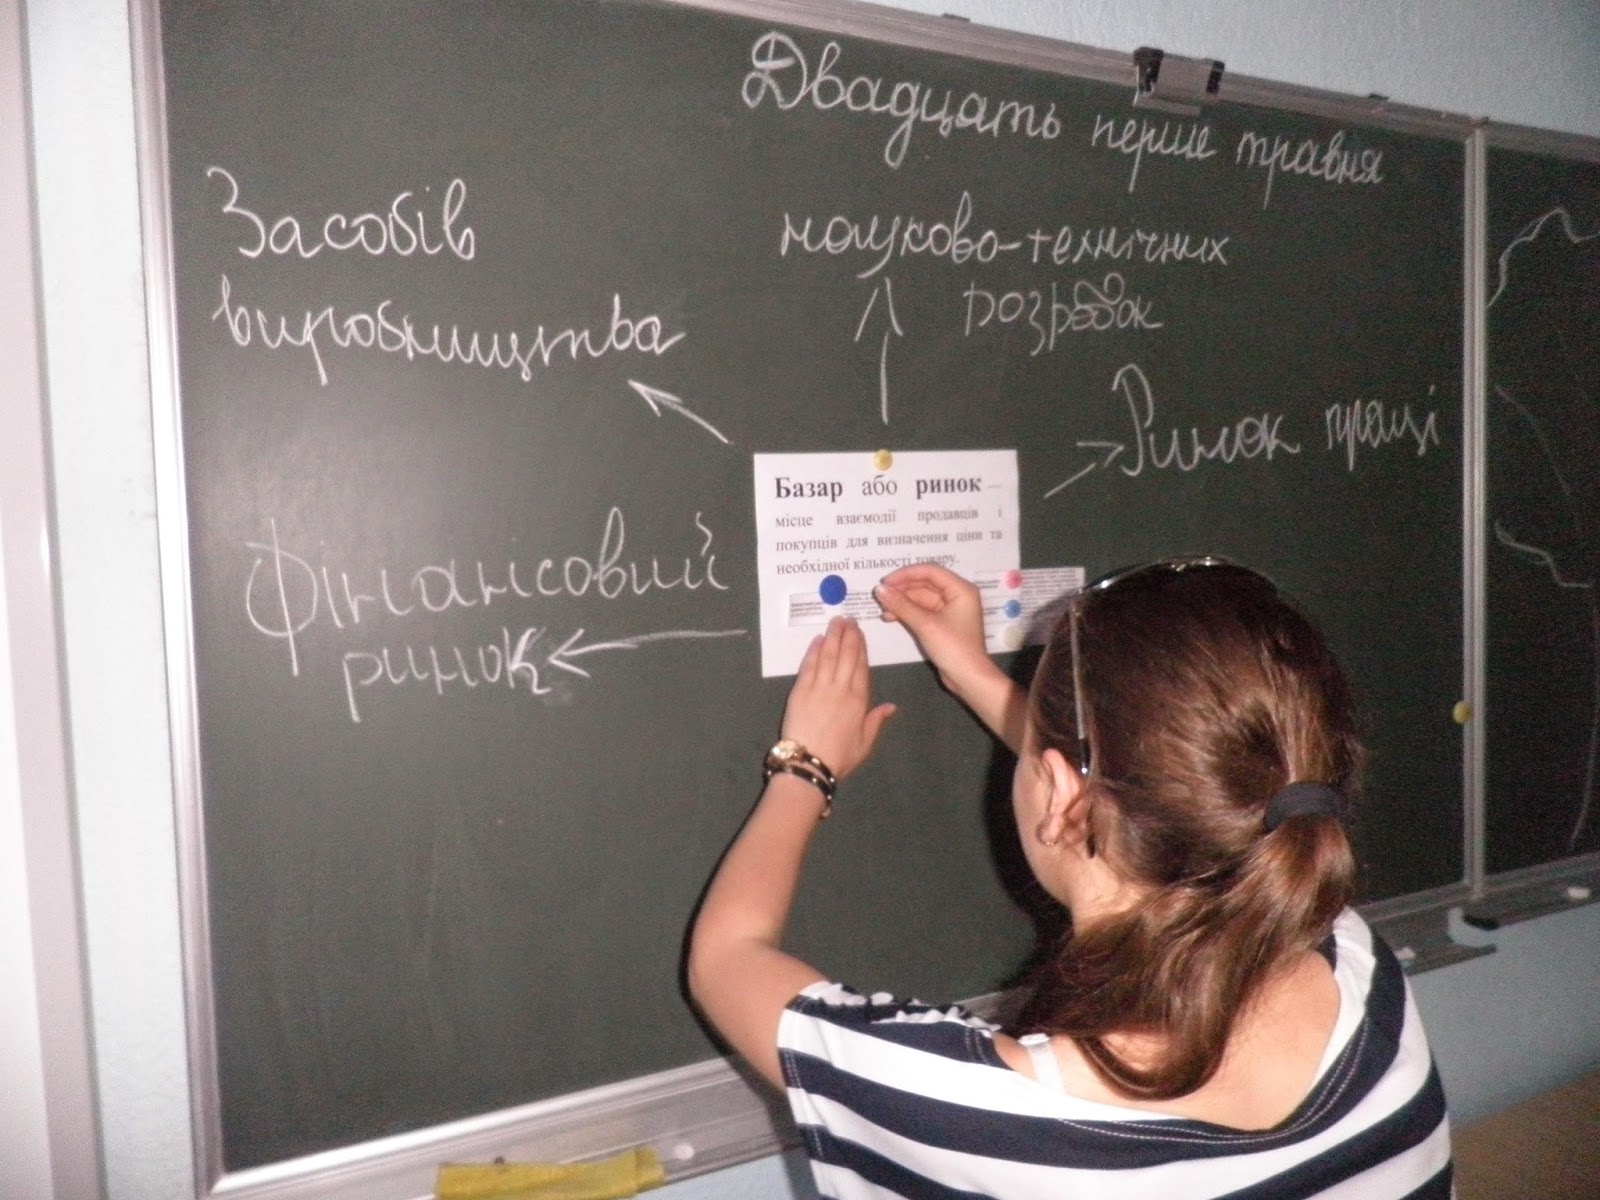 Двадцать перше травня
Засобів
виробництва
науково-технічних
розробок
Ринок праці
Фінансовий
ринок
Базар або ринок —
місце взаємодії продавців і
покупців для визначення ціни та
необхідної кількості товару.